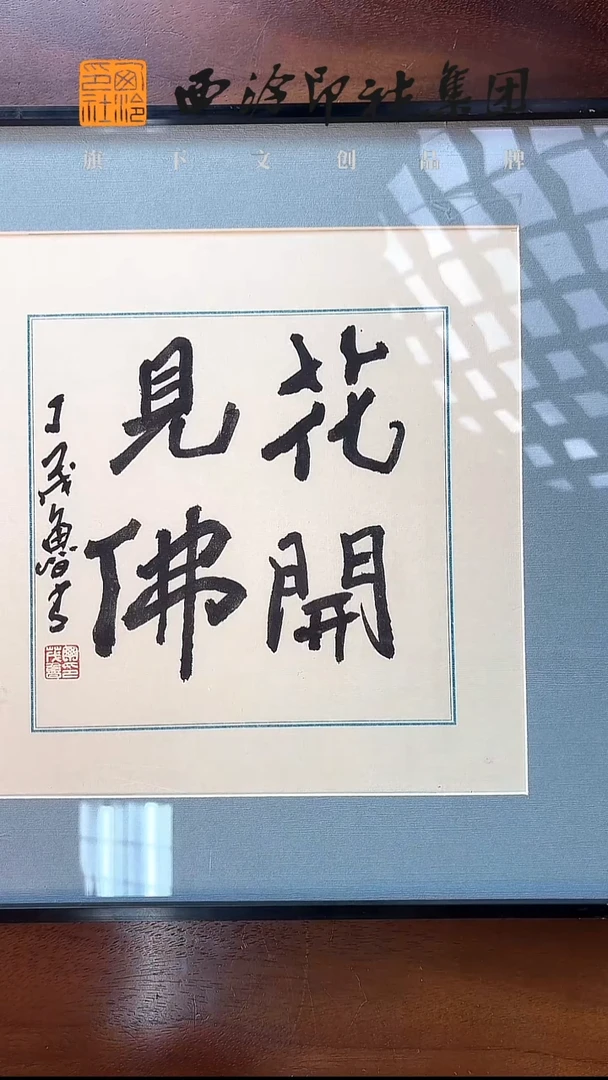 西泠印社
西泠印社集团
旗下文创品牌
花開
見佛
丁茂魯書